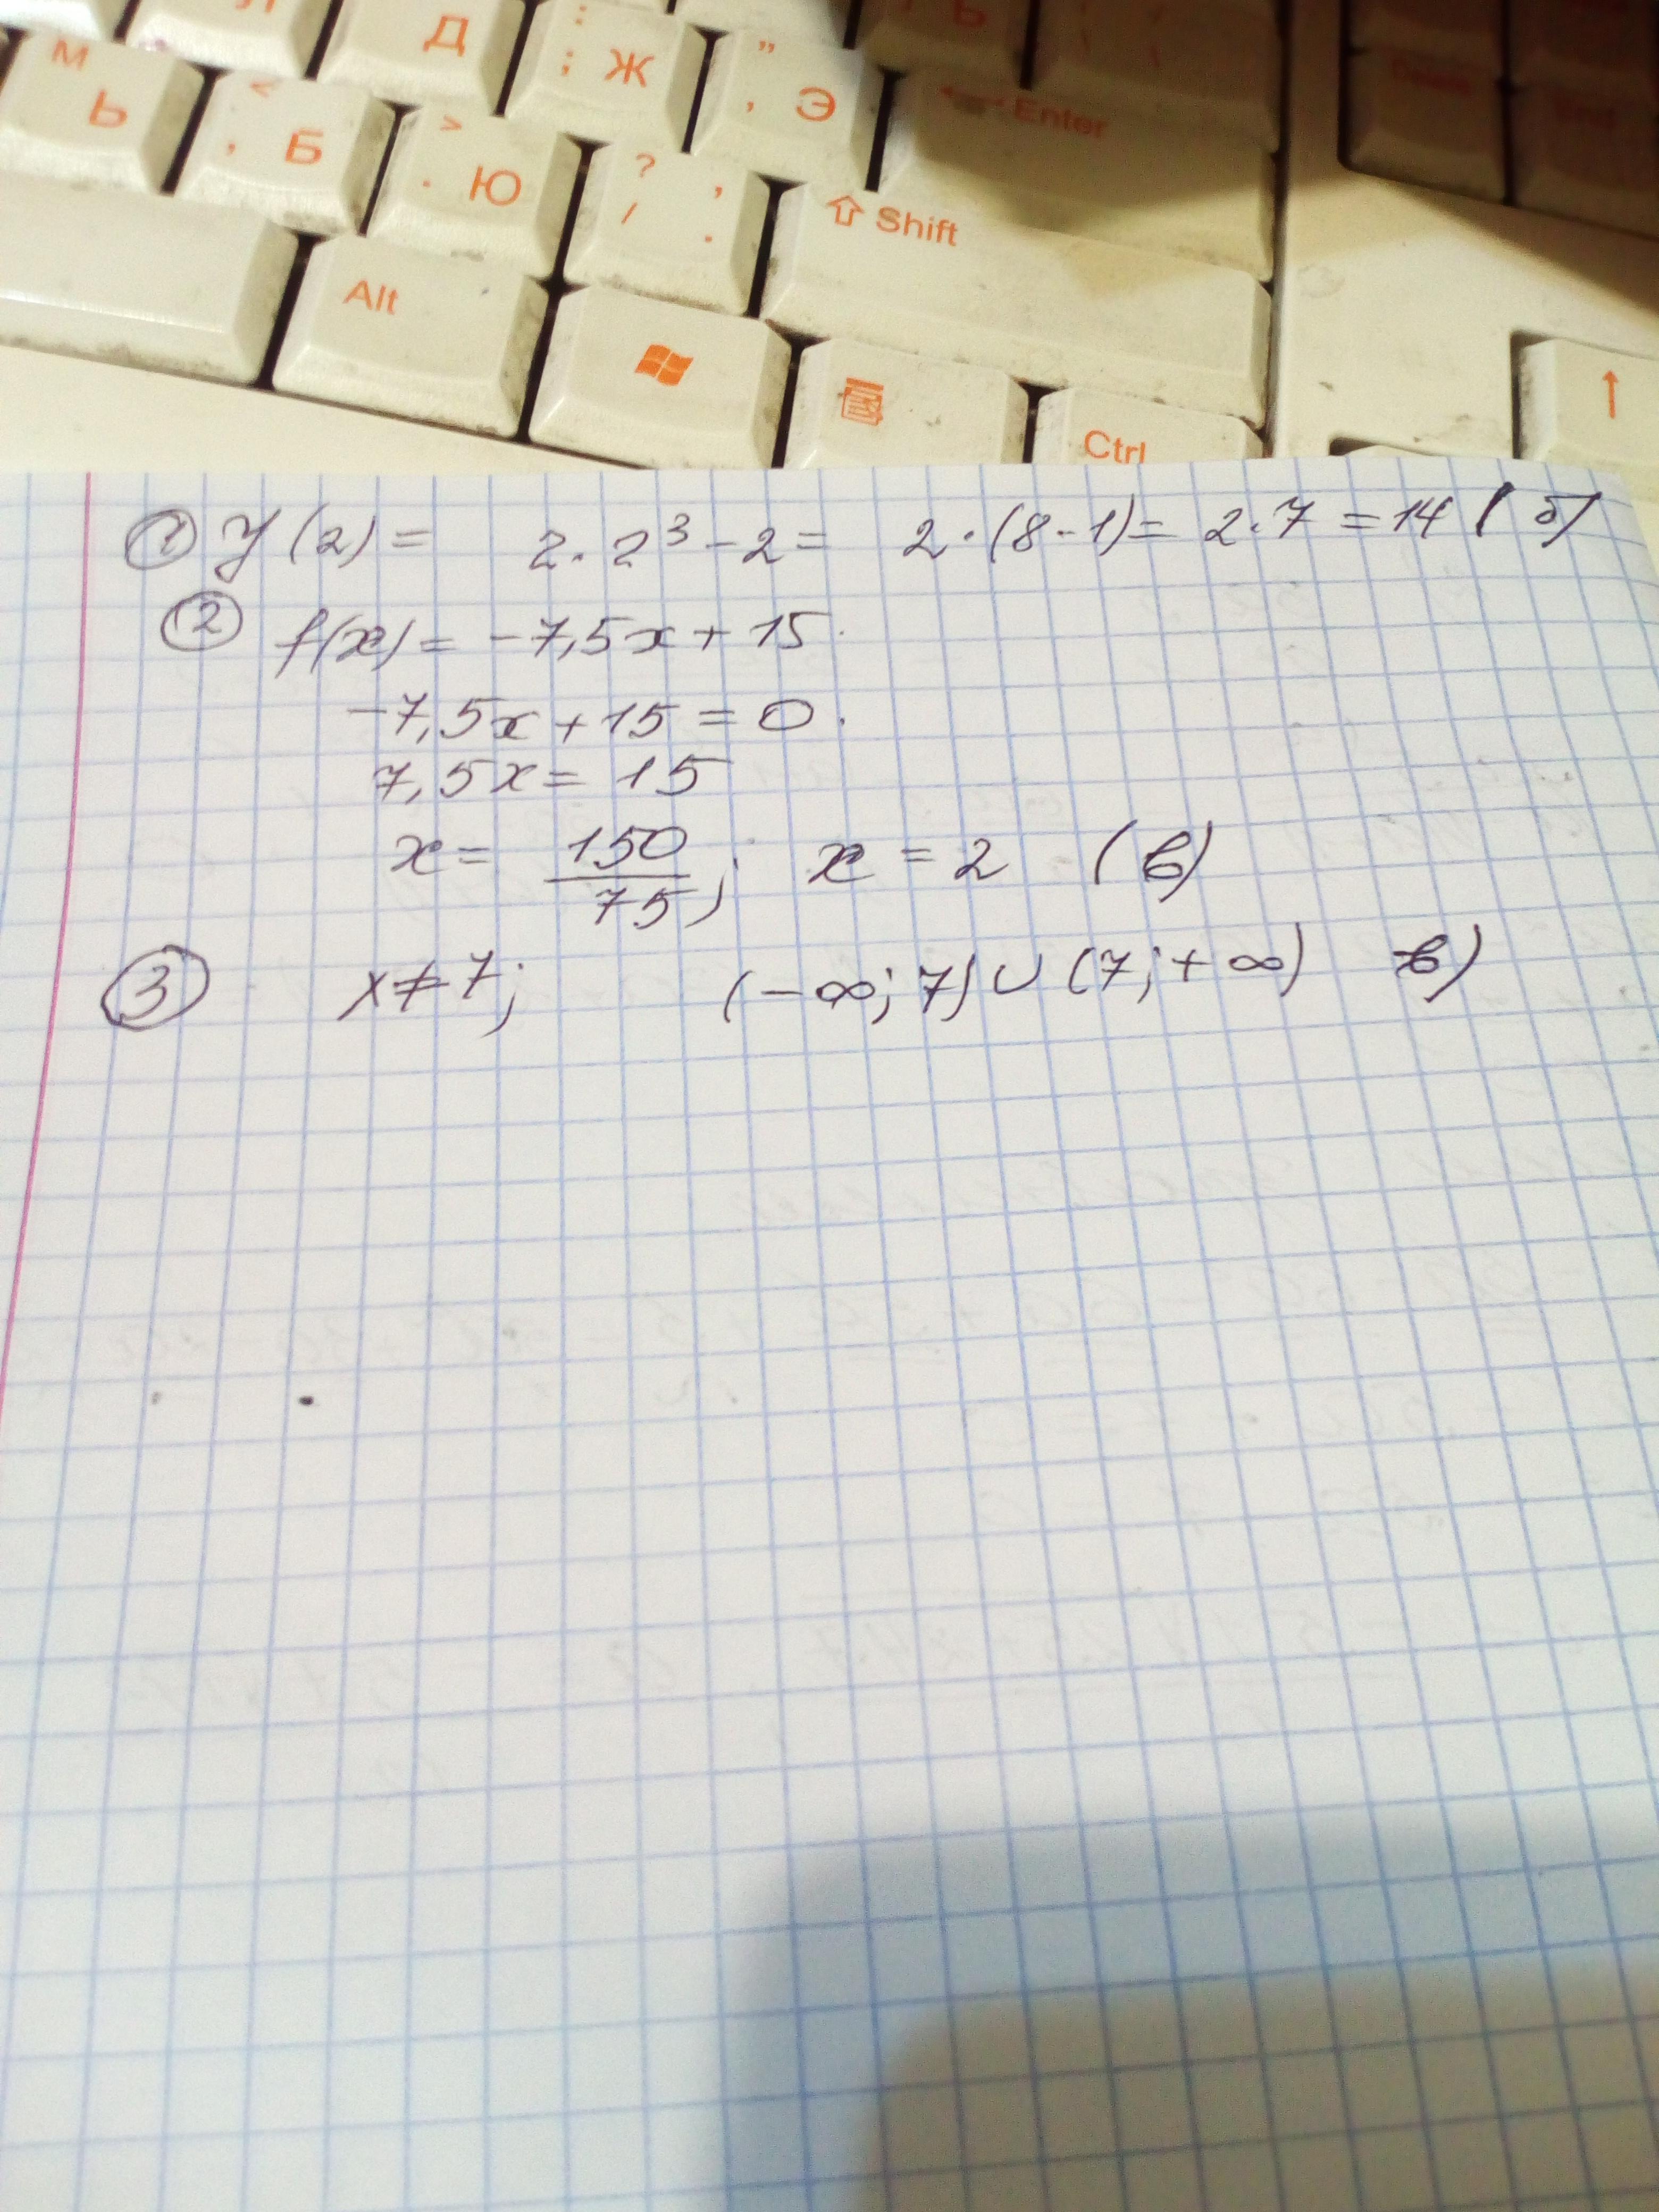 Д
: ; Ж
" , Э
Enter
М Ь
< , Б
> . Ю
? , / .
Shift
Alt
Ctrl
① y(2) = 2·2³-2= 2·(8-1)= 2·7 =14 (б)
② f(x)= -7,5x+15.
-7,5x+15=0.
7,5x=15
x= 150/75; x=2 (в)
③ x≠7; (-∞; 7)∪(7;+∞) в)